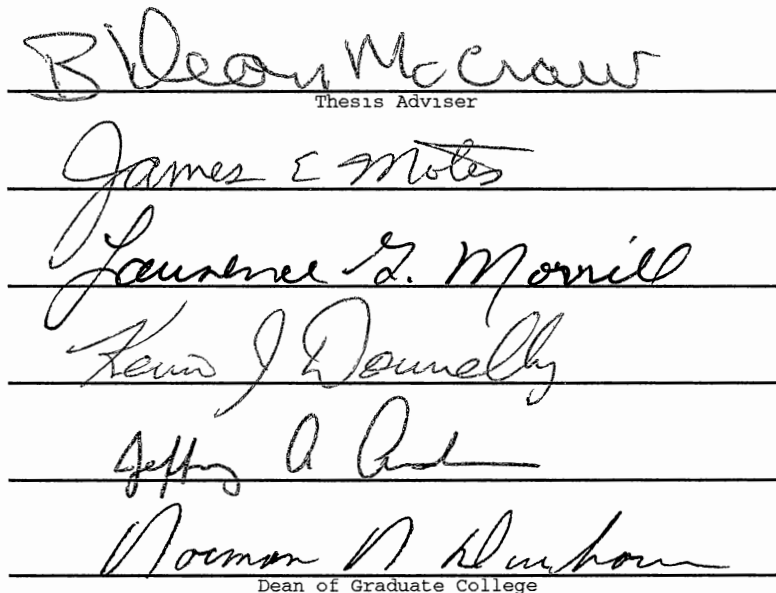 B Dean McCraw
Thesis Adviser
James E Motes
Lawrence G. Morrill
Kevin J Donnelly
Jeffrey A
Norman N Durham
Dean of Graduate College